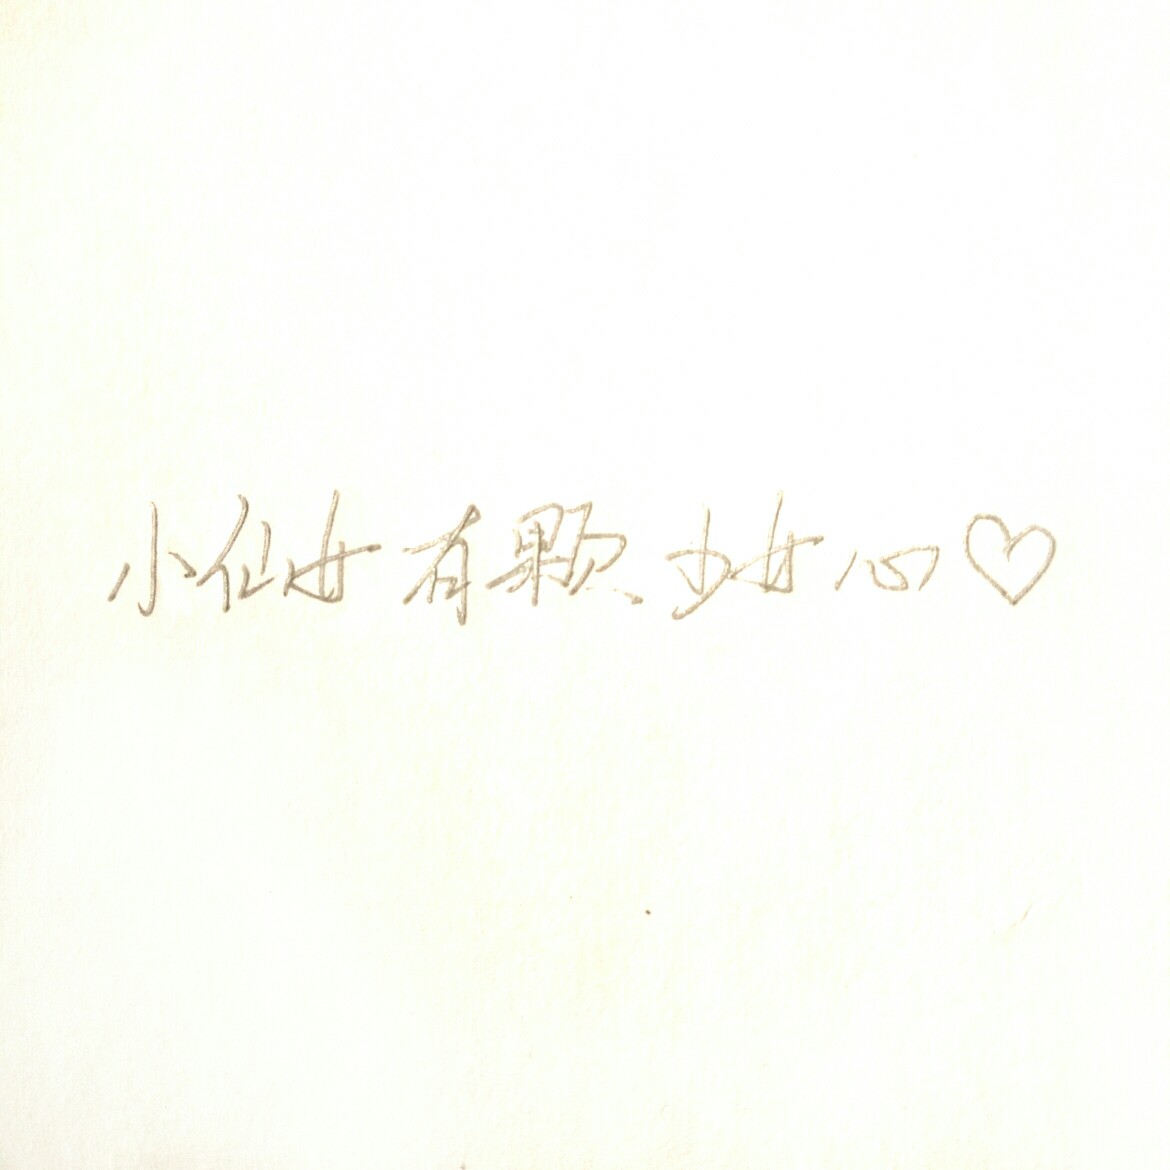 小仙女有颗少女心♡